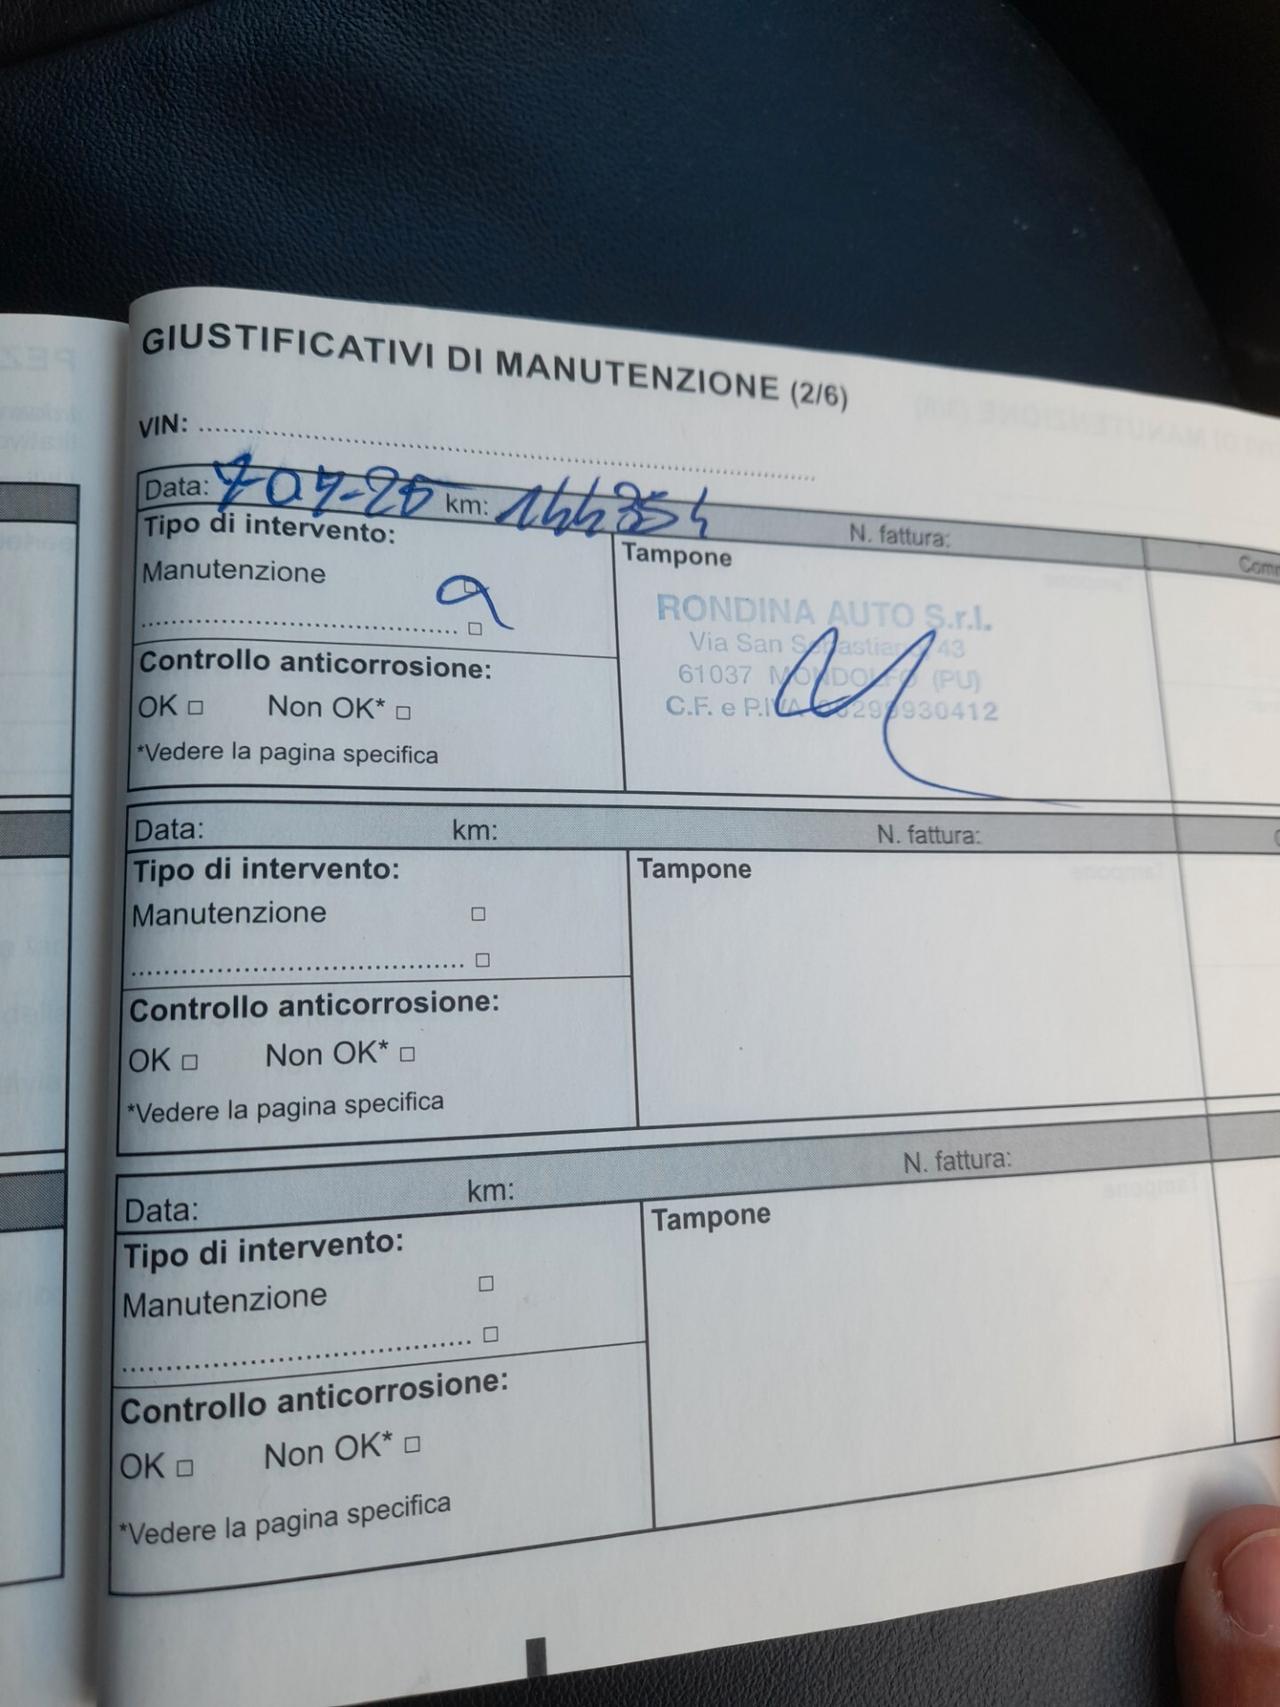 GIUSTIFICATIVI DI MANUTENZIONE (2/6)
VIN:
Data: 7-07-25 km: 144354 N. fattura:
Tipo di intervento:
Tampone
Manutenzione
RONDINA AUTO S.r.l.
Via San Sebastiano, 43
61037 MONDOLFO (PU)
C.F. e P.IVA
Controllo anticorrosione:
OK □ Non OK* □
*Vedere la pagina specifica
Data: km: N. fattura:
Tipo di intervento:
Tampone
Manutenzione □
□
Controllo anticorrosione:
OK □ Non OK* □
*Vedere la pagina specifica
Data: km: N. fattura:
Tipo di intervento:
Tampone
Manutenzione □
□
Controllo anticorrosione:
OK □ Non OK* □
*Vedere la pagina specifica